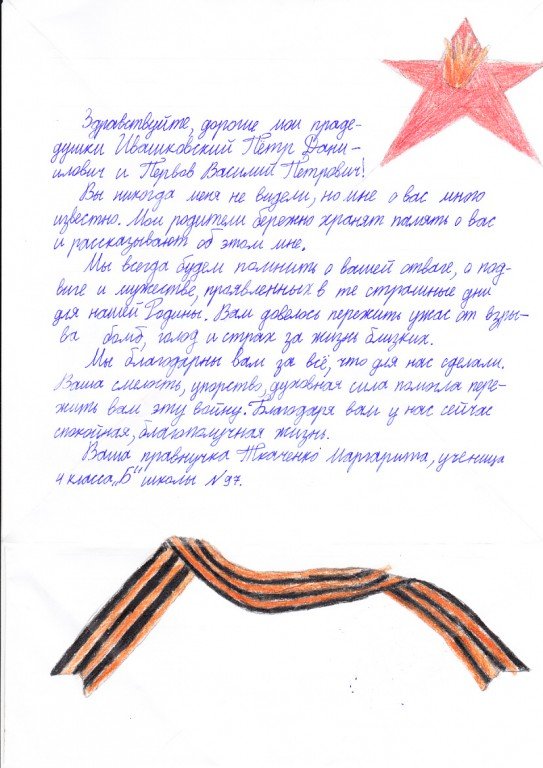 Здравствуйте, дорогие мои праде-
душки Ивашковский Петр Дани-
илович и Первов Василий Петрович!
Вы никогда меня не видели, но мне о вас много
известно. Мои родители бережно хранят память о вас
и рассказывают об этом мне.
Мы всегда будем помнить о вашей отваге, о под-
виге и мужестве, проявленных в те страшные дни
для нашей Родины. Вам довелось пережить ужас от взры-
ва бомб, голод и страх за жизнь близких.
Мы благодарны вам за всё, что для нас сделали.
Ваша смелость, упорство, духовная сила помогла пере-
жить вам эту войну. Благодаря вам у нас сейчас
спокойная, благополучная жизнь.
Ваша правнучка Ткаченко Маргарита, ученица
4 класса „Б" школы №97.